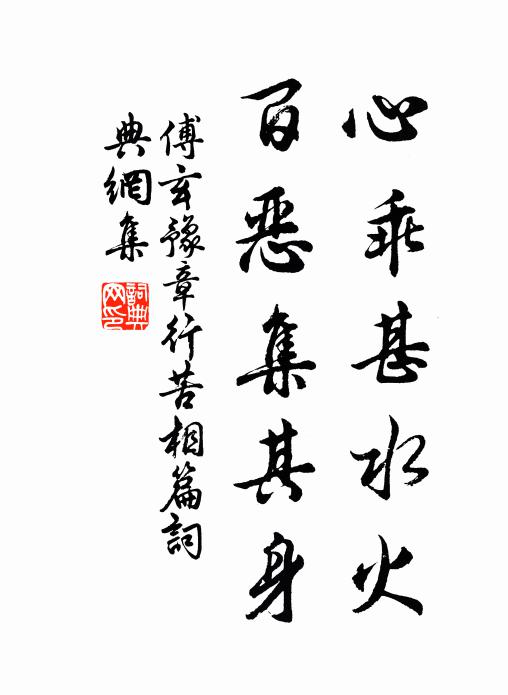 心乖甚水火
百惡集其身
傅玄豫章行苦相篇詞
典網集
詞典
网印